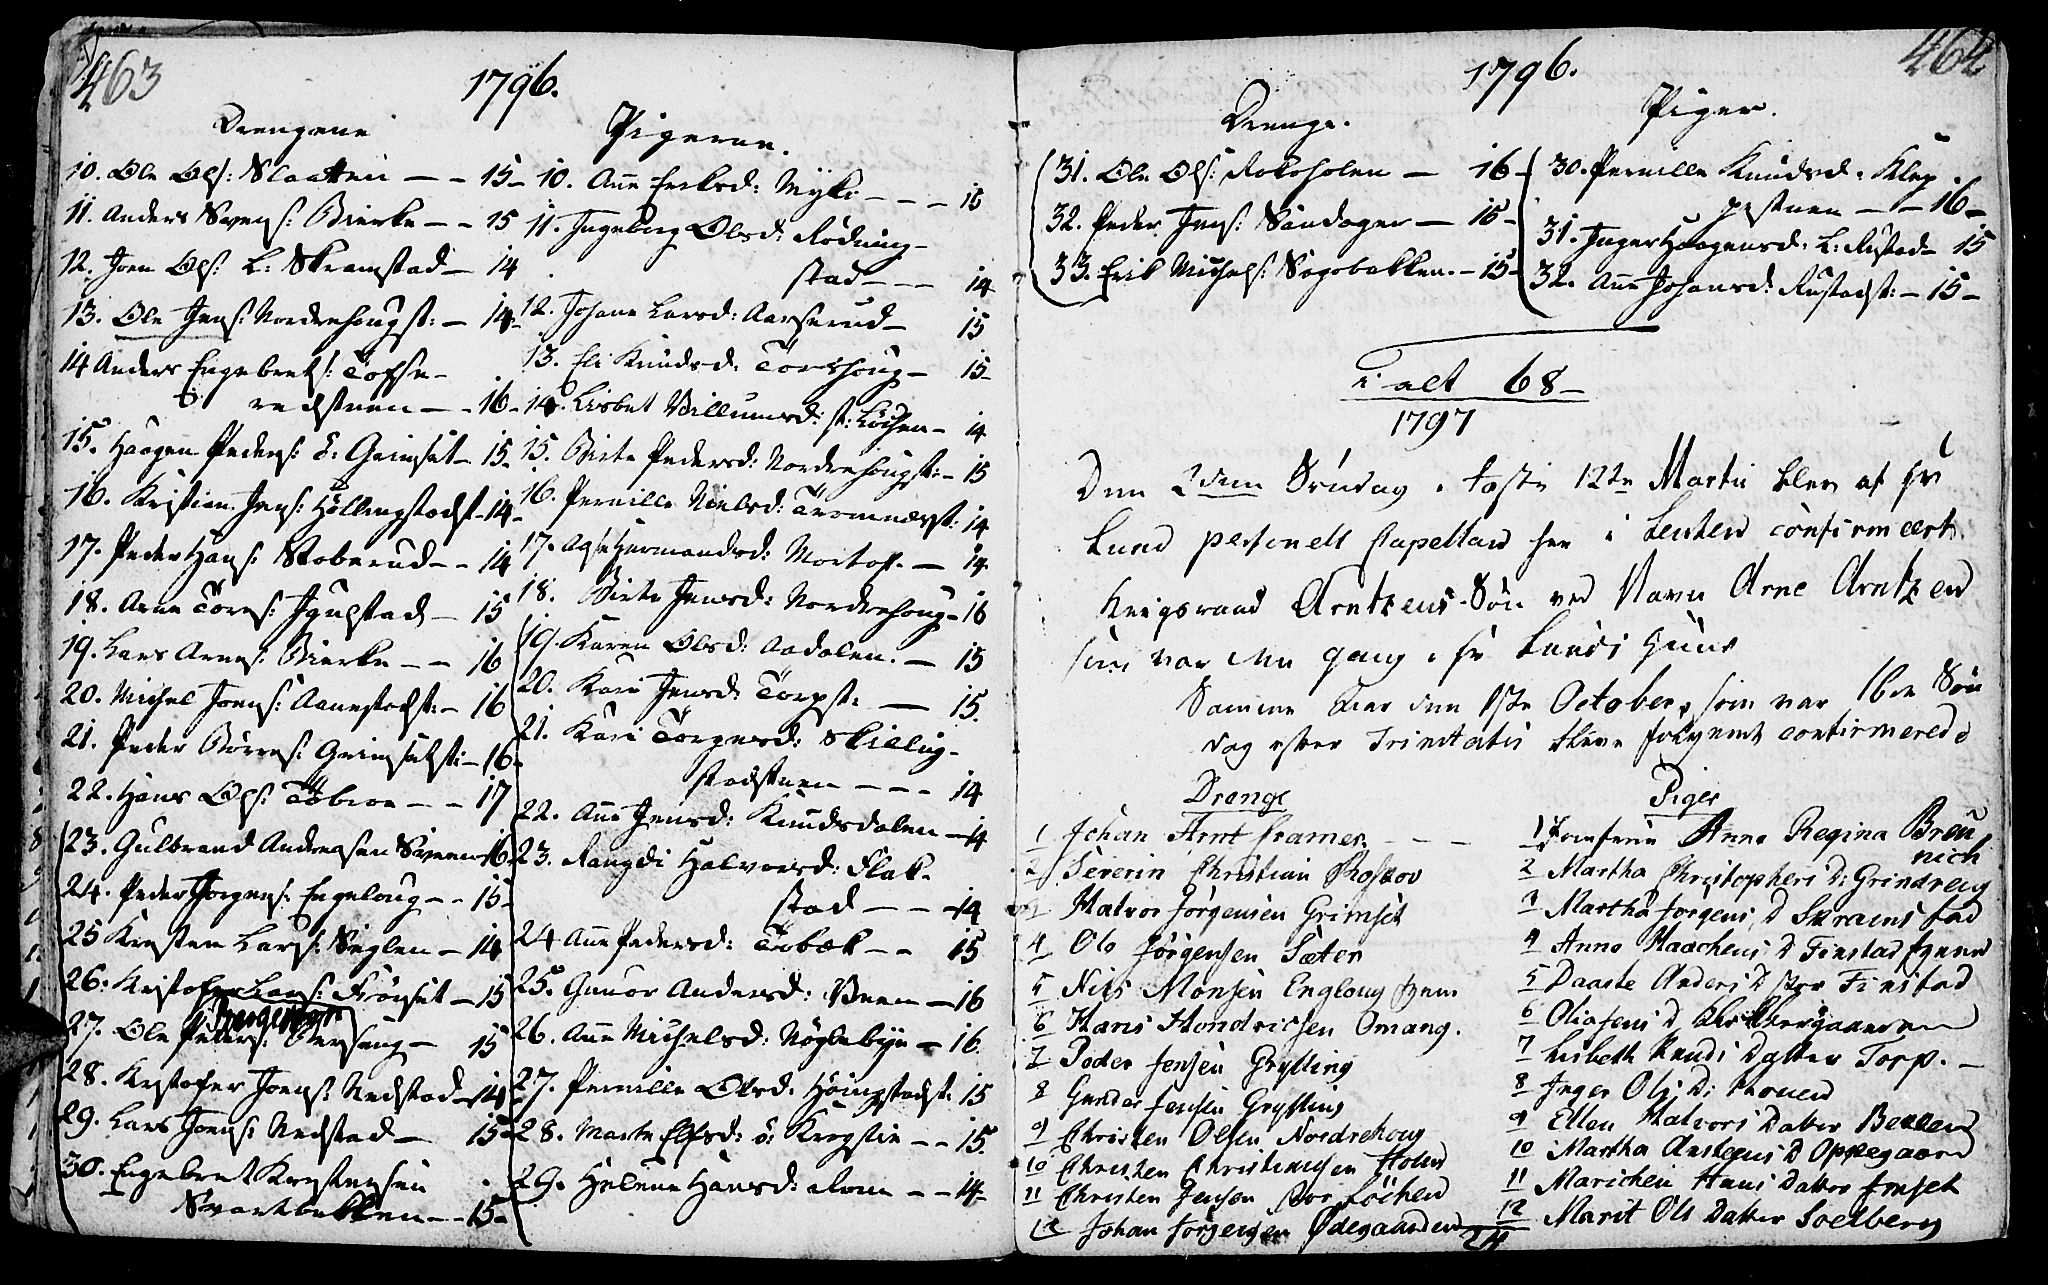 463
1796.
Drengene
10. Ole Ols: Slaatten — — 15
11. Anders Svens: Bierke — — 15
12. Joen Ols: L: Skramstad — 14
13. Ole Jens: Nordrehougst: — 14
14 Anders Engebrets: Tofse-
redstuen — — 16
15. Haagen Peders: Grimset — 15.
16. Kristian Jens: Höllingstadst — 14
17. Peder Hans: Stoberud — — 14
18. Arne Tores: Igulstad — 15
19. Lars Arnes: Bierke — — 16
20. Michel Joens: Aanestadst: — 16
21. Peder Börres: Grimsetst: — 16
22. Hans Ols: Töbroe — — 17
23. Gulbrand Andersen Sveen 16
24. Peder Jörgens: Engeloug — — 15
25 Kresten Lars: Seglen — 14
26. Kristofer Lars: Frönset — 15
27. Ole Peders: — 15
28. Kristofer Joens: Nedstad — 14
29. Lars Joens: Nedstad — 15
30. Engebret Krystensen
Svartbekken — — 15
Pigerne.
10. Ane Eriksd: Mykle — — — 16
11. Ingeborg Olsd: Rödning-
stad — — — 14
12. Johane Larsd: Aaeserud — 15
13. Eli Knudsd: Torshoug — 15
14. Lisbet Villumsd: st: Löchen — 14
15. Birte Pedersd: Nordrehougst: — 15
16. Pernille Nielsd: Tromnæsst: 14
17. Agte Hermandsd: Mortof. — 14.
18. Birte Jensd: Nordrehoug — 16
19. Karen Olsd: Aadalen. — 15
20. Kari Jensd: Torpst: — 15.
21. Kari Torgersd: Skilling-
stadstuen — — — 14
22. Ane Jensd: Knudsdalen — 14
23. Rangdi Halvorsd: Flak-
stad — — — 14
24 Ane Pedersd: Tobæk — — 15
25. Gunor Andersd: Veen — 16
26. Ane Michelsd: Nöglebye — 16.
27. Pernille Olsd: Höingstadst: 15
28. Marte Elfsd: ö: Krogstie — — 15.
29. Helene Hansd: Rom — — 14
464
1796.
Drenge.
31. Ole Ols: Rokoholen — 16
32. Peder Jens: Sandager — 15
33. Erik Michels: Sogobakken. — 15
Piger.
30. Pernille Knudsd: Klep-
pestuen — — 16
31. Inger Haagensd: L: Rustad — 15
32. Ane Johansd: Rustadst: — 15 —
i alt 68 —
1797
Den 2den Söndag i Faste 12te Martii blev af Hr
Lund personell Capellan her i Leuten confirmeert
Krigsraad Arntzens Sön ved Navn Arne Arntzen
som var den gang i Hr Lunds Huus
Samme Aar den 1ste October, som var 16de Sön
dag efter Trinitatis bleve fölgende confirmerede
Drenge
1 Johan Arnt Cramer — — —
2 Severin Christian Roskov
3 Halvor Jörgensen Grimset
4 Ole Jörgensen Sæter
5 Nils Monsen Engloug Eyni
6 Hans Hendrichsen Omang.
7 Peder Jensen Grytting
8 Gunder Jensen Grytting
9 Christen Olsen Nordrehoug
10 Christen Christensen Holen
11 Christen Jensen Stor Löchen
12 Johan Jörgensen Ödegaarden
24
Piger
1 Jomfrue Anne Regina Breu
nich
2 Martha Christophers D: Grindreng
3 Martha Jorgens D Skramstad
4 Anne Haachens D Finstad Eyene
5 Daarte Anders D Stor Finstad
6 Olia Jens D
7 Lisbeth Knuds Datter Torp. —
8 Inger Ols D: Roven
9 Ellen Halvors Datter Becken
10 Martha Arstens D Oppegaard
11 Marichen Hans Datter Imset
12 Marit Ols Datter Soelberg